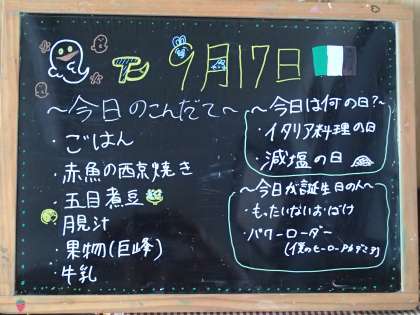 9月17日
～今日のこんだて～
・ごはん
・赤魚の西京焼き
・五目煮豆
・月見汁
・果物(巨峰)
・牛乳
～今日は何の日?～
・イタリア料理の日
・減塩の日
～今日が誕生日の人～
・もったいないおばけ
・パワーローダー
(僕のヒーローアカデミア)